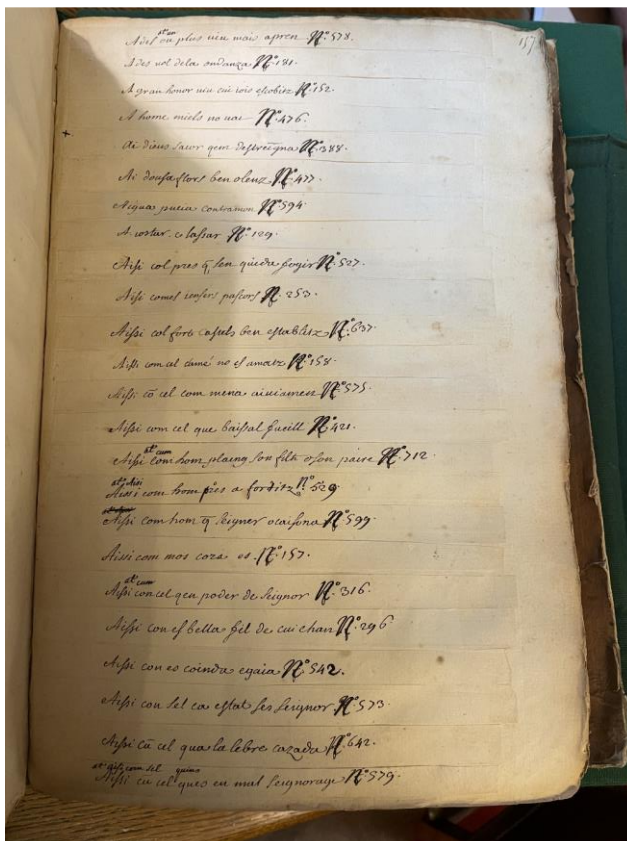 157
at cu
A del on plus uiu mais apren Nº. 578.
Ades uol dela ondanza Nº. 181.
A gran honor uiu cui iois es cobitz Nº. 152.
A home miels no uai Nº. 476.
Ai dieus saior qem destreigna Nº. 388.
Ai dousa flors ben olenz Nº. 477.
Aigua pueia contramon Nº 594.
A iostar e lassar Nº. 129.
Aissi col pres q̃ sen quieda fogir Nº. 527.
Aissi comes iensers pascors Nº. 253.
Aissi col fortz castels ben establitz Nº. 637.
Aissi com cel camé no es amatz Nº. 158.
Aissi cõ cel com mena aiuiamen Nº 575.
Aissi com cel que baissal fueill Nº 421.
at cum
Aissi com hom plaing son filh o son paire Nº. 712.
at Aisi
Aissi com hom pres a forditz nº. 529.
Aissi com hom q̃ seigner ocaisona Nº. 599.
Aissi com mos cors es. Nº. 157.
at cum
Aissi con cel qeu poder de seignor Nº. 316.
Aissi con es bella sel de cui chan Nº. 296
Aissi con es coinda egaia Nº. 542.
Aissi con sel ca estat ses seignor Nº. 573.
Aissi cũ cel qua la lebre cazada Nº. 642.
at aissi com sel quieus
Aissi cũ cel ques en mal seignorage Nº. 579.